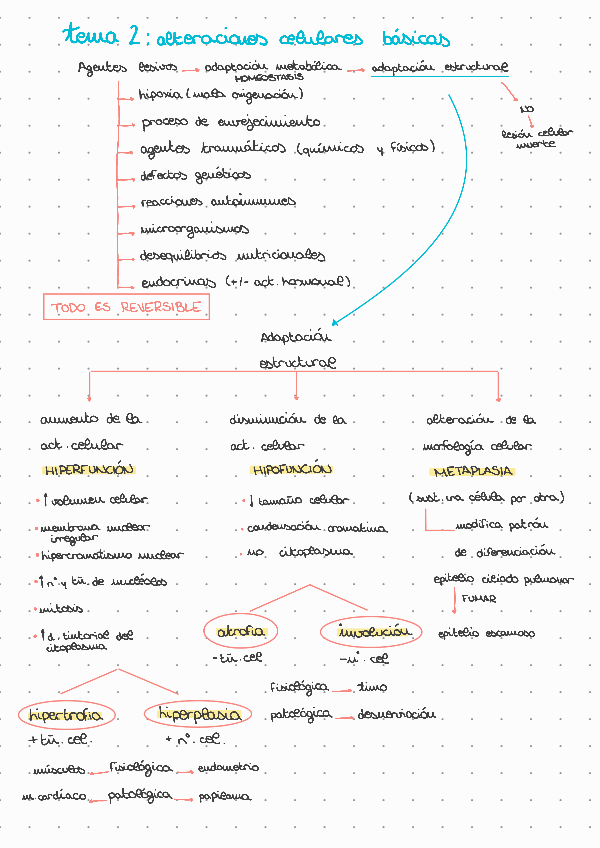 tema 2: alteraciones celulares básicas
Agentes lesivos → adaptación metabólica → adaptación estructural
HOMEOSTASIS
hipoxia (mala oxigenación)
NO
proceso de envejecimiento
lesión celular
muerte
agentes traumáticos (químicos y físicos)
defectos genéticos
reacciones autoinmunes
microorganismos
desequilibrios nutricionales
endocrinas (+/- act. hormonal)
TODO ES REVERSIBLE
Adaptación
estructural
aumento de la
act. celular
HIPERFUNCIÓN
• ↑ volumen celular
• membrana nuclear
irregular
• hipercromatismo nuclear
• ↑ nº y tñ. de nucléolos
• mitosis
• ↑ d. tintorial del
citoplasma
hipertrofia
+ tñ. cel.
hiperplasia
+ nº. cel.
músculos ← fisiológica → endometrio
m. cardíaco ← patológica → papiloma
disminución de la
act. celular
HIPOFUNCIÓN
• ↓ tamaño celular
• condensación cromatina
• no citoplasma
atrofia
- tñ. cel
involución
- nº. cel
fisiológica → timo
patológica → desnervación
alteración de la
morfología celular
METAPLASIA
(sust. una célula por otra)
modifica patrón
de diferenciación
epitelio ciliado pulmonar
FUMAR
epitelio escamoso